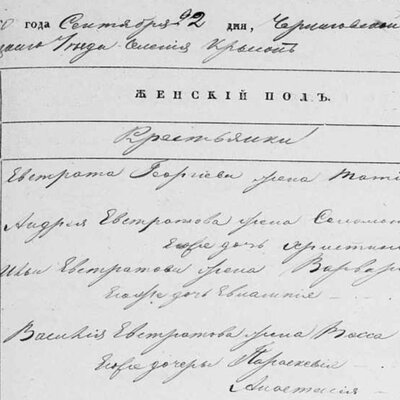 0 года Сентября 22 дня, Черниговской
Уезда Селенія
ЖЕНСКІЙ ПОЛЪ.
Крестьянки
Евстрата Георгіева жена
Андрея Евстратова жена Соломон
Ево же дочь Христин
Ильи Евстратова жена Варвар
Ево же дочь Евлампія
Василія Евстратова жена Васса
Ево же дочери Параскевія
Анастасія